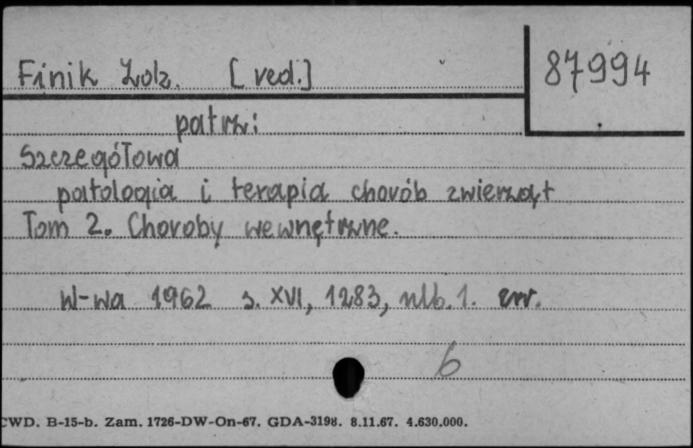 Finik [red.]
87994
patrz:
Szczegółowa
patologia i terapia chorób zwierząt
Tom 2. Choroby wewnętrzne.
W-wa 1962 s. XVI, 1283, nlb. 1.
6
CWD. B-15-b. Zam. 1726-DW-On-67. GDA-3198. 8.11.67. 4.630.000.